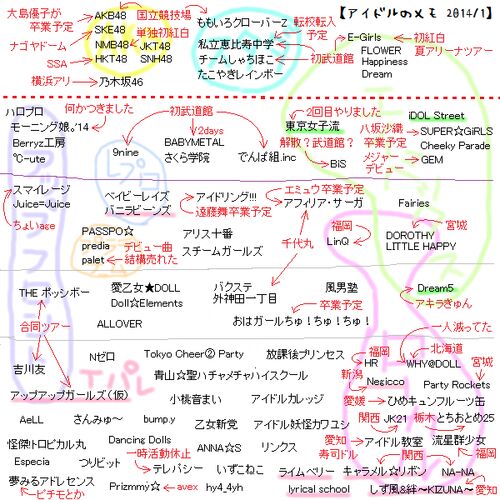 【アイドルのメモ 2014/1】
大島優子が
卒業予定
AKB48
国立競技場
ももいろクローバーZ
転校転入
予定
E-Girls
初紅白
SKE48
ナゴヤドーム
NMB48
単独初紅白
JKT48
私立恵比寿中学
FLOWER
夏アリーナツアー
SSA
HKT48
SNH48
チームしゃちほこ
初武道館
Happiness
たこやきレインボー
Dream
横浜アリ
乃木坂46
ハロプロ
何かつきました
初武道館
2回目やりました
iDOL Street
モーニング娘。'14
2days
東京女子流
八坂沙織
卒業予定
SUPER☆GiRLS
Berryz工房
9nine
BABYMETAL
解散?武道館?
Cheeky Parade
℃-ute
さくら学院
でんぱ組.inc
BiS
メジャー
デビュー
GEM
スマイレージ
ベイビーレイズ
アイドリング!!!
エミュウ卒業予定
アフィリア・サーガ
Fairies
Juice=Juice
バニラビーンズ
遠藤舞卒業予定
ちょいage
PASSPO☆
アリス十番
千代丸
福岡
LinQ
宮城
DOROTHY
LITTLE HAPPY
predia
デビュー曲
結構売れた
スチームガールズ
palet
THE ポッシボー
愛乙女★DOLL
バクステ
外神田一丁目
風男塾
Dream5
Doll☆Elements
卒業予定
アキラきゅん
合同ツアー
ALLOVER
おはガールちゅ!ちゅ!ちゅ!
一人減ってた
吉川友
Nゼロ
Tokyo Cheer② Party
放課後プリンセス
福岡
HR
北海道
WHY@DOLL
宮城
青山☆聖ハチャメチャハイスクール
新潟
Nesicco
Party Rockets
アップアップガールズ(仮)
小桃音まい
アイドルカレッジ
愛媛
ひめキュンフルーツ缶
AeLL
さんみゅ〜
bump.y
乙女新党
アイドル妖怪カワユシ
関西
JK21
栃木
とちおとめ25
怪傑トロピカル丸
Dancing Dolls
ANNA☆S
リンクス
愛知
アイドル教室
流星群少女
一時活動休止
寿司ドル
関西
福岡
Especia
つりビット
テレパシー
いずこねこ
ライムベリー
キャラメル☆リボン
NA-NA
夢みるアドレセンス
Prizmmy☆
avex
hy4_4yh
lyrical school
しず風&絆〜KIZUNA〜
愛知
ピチモとか
レプロ
Tパレ